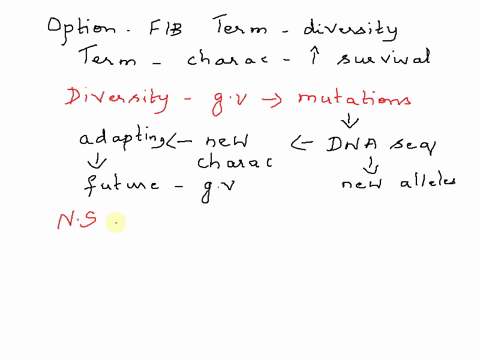 Option. FIB Term - diversity
Term - charac - ↑ survival
Diversity - g.v → mutations
adapting ← new charac ← DNA seq
future - g.v new alleles
N.S